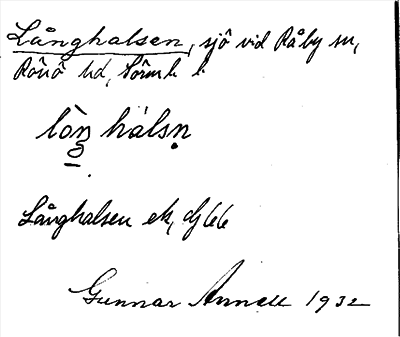 Långhalsen, sjö vid Råby sn,
Rönö hd, Sörml. l.
lòŋ hàlsṇ
Långhalsen ek, dj 66
Gunnar Annell 1932